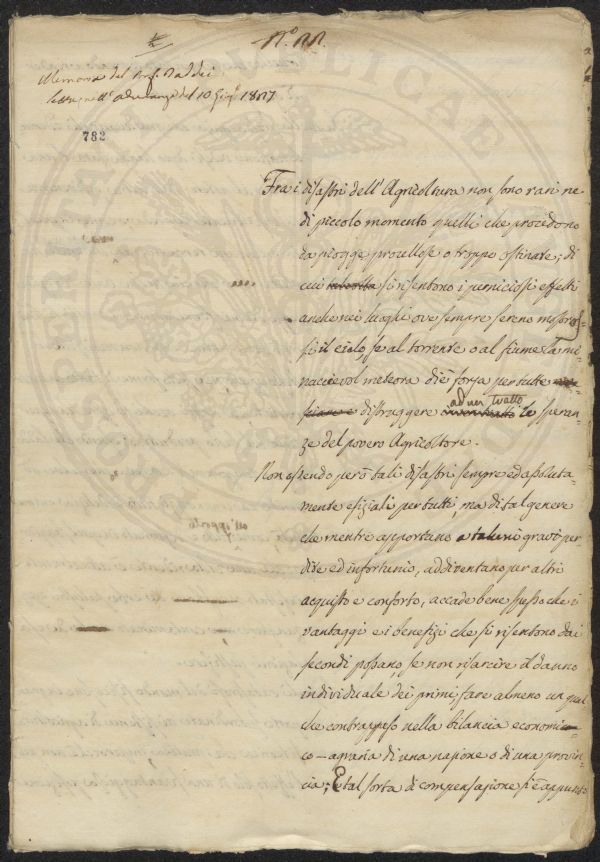 N.° 22.
Memoria del Prof. Taddei
letta nell' Adunanza del 10 Giug.° 1827
782
Fra i disastri dell' Agricoltura non sono rari ne
di piccolo momento quelli che procedono
da piogge procellose o troppo ostinate; di
cui si risentono i perniciosi effetti
anche nei luoghi ove sempre sereno
si il cielo, se al torrente o al fiume la mi-
naccievol meteora diè forza per tutto
distruggere ad un tratto le speran-
ze del povero Agricoltore.
Non essendo però tali disastri sempre ed assoluta-
mente esiziali per tutti, ma di tal genere
che mentre apportano a taluni gravi per-
dite ed infortunio, addiventano per altri
acquisto e conforto, accade bene spesso che i
vantaggi e i benefizi che si risentono dai
secondi possano se non risarcire il danno
individuale dei primi, fare almeno un qual
che contrappeso nella bilancia economi-
co-agraria di una nazione o di una provin-
cia; E tal sorta di compensazione si è appunto
all'opposto